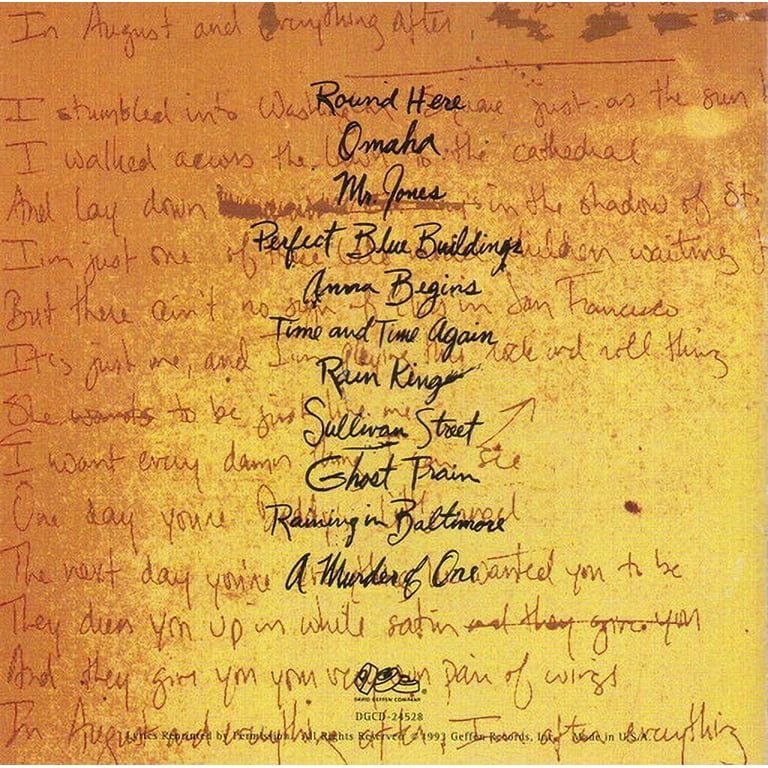 In August and everything after,
I stumbled into just as the sun
Round Here
I walked across the to the cathedral
Omaha
And lay down in the shadow of St.
Mr. Jones
I'm just one of children waiting
Perfect Blue Buildings
But there ain't no sign of in San Francisco
Anna Begins
It's just me, and I'm playing this rock and roll thing
Time and Time Again
She wants to be just like me
Rain King
I want every damn see
Sullivan Street
Ghost Train
One day you're
Raining in Baltimore
The next day you're wanted you to be
A Murder of One
They dress you up in white satin and they give you
And they give you your very own pair of wings
DAVID GEFFEN COMPANY ®
DGCD-24528
In August and everything after, I after everything
Lyrics Reprinted by Permission. All Rights Reserved. © 1993 Geffen Records, Inc. Made in U.S.A.